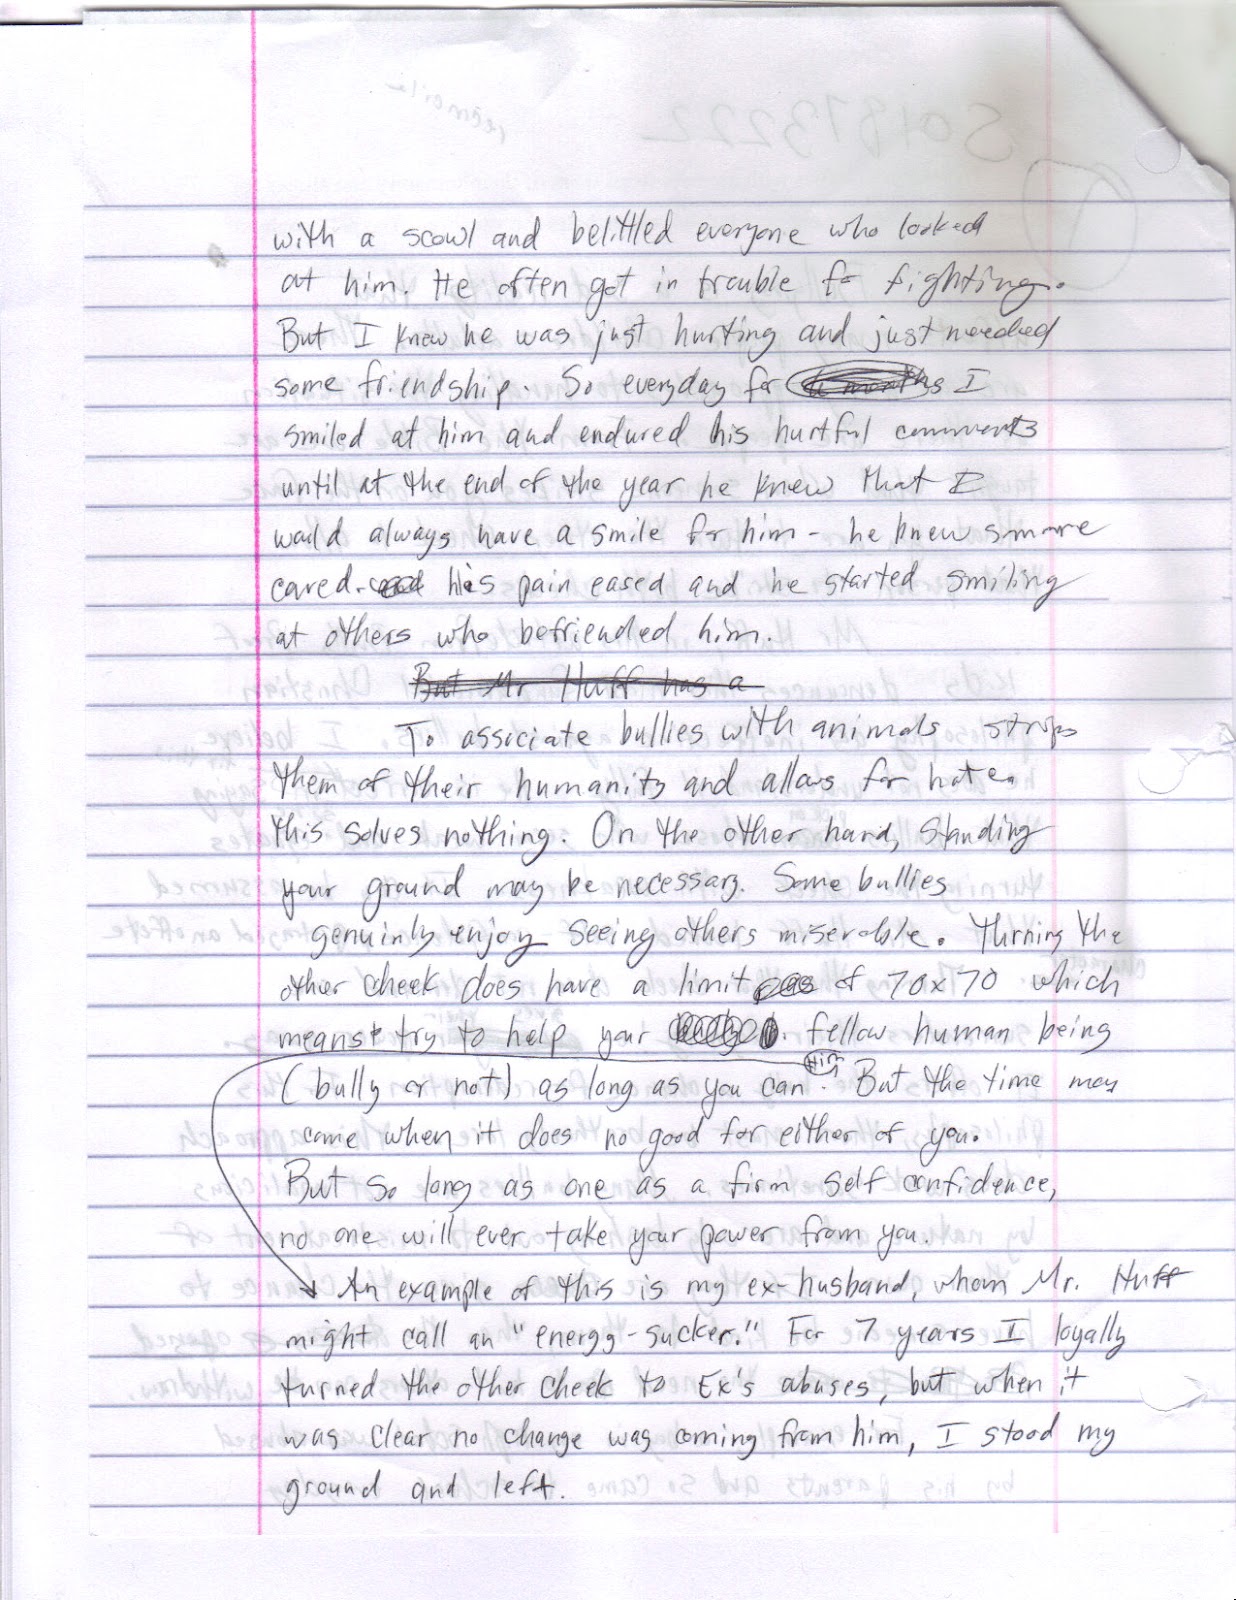 with a scowl and belittled everyone who looked
at him. He often got in trouble for fighting.
But I knew he was just hurting and just needed
some friendship. So everyday for I
smiled at him and endured his hurtful comments
until at the end of the year he knew that I
would always have a smile for him - he knew
cared. his pain eased and he started smiling
at others who befriended him.
But Mr Huff has a
To associate bullies with animals strips
them of their humanity and allows for hate.
this solves nothing. On the other hand, standing
your ground may be necessary. Some bullies
genuinly enjoy seeing others miserable. Turning the
other cheek does have a limit of 70x70 which
means try to help your fellow human being
(bully or not) as long as you can. But the time may
come when it does no good for either of you.
But so long as one as a firm self confidence,
no one will ever take your power from you.
An example of this is my ex-husband, whom Mr. Huff
might call an "energy-sucker." For 7 years I loyally
turned the other cheek to Ex's abuses, but when it
was clear no change was coming from him, I stood my
ground and left.